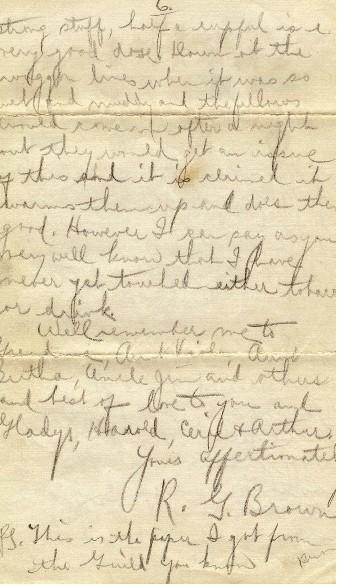 6.
strong stuff, half a cupful is a
very good dose. Down at the
waggon lines when it was so
wet and muddy and the fellows
would come in after a night
out they would get an issue
of this and it is claimed it
warms them up and does them
good. However I can say as you
very well know that I have
never yet touched either tobacco
or drink.
Well remember me to
Aunt Aunt
Bertha, Uncle Jim and others
and best of love to you and
Gladys, Harold, Cecil & Arthur.
Yours affectionately
R. G. Brown
PS. This is the paper I got from
the Guild you know